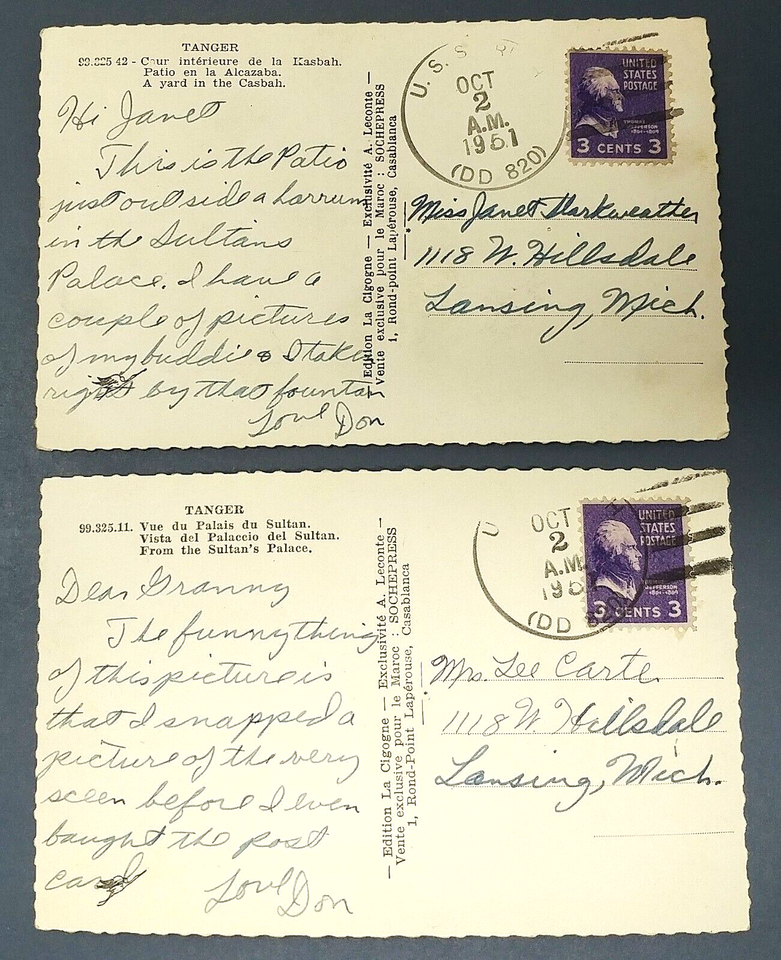 TANGER
99.325 42 - Cour intérieure de la Kasbah.
Patio en la Alcazaba.
A yard in the Casbah.
Hi Janet
This is the Patio
just outside a harrum
in the Sultans
Palace. I have a
couple of pictures
of my buddies & I taken
right by that fountain
Love Don
Edition La Cigogne — Exclusivité A. Leconte —
Vente exclusive pour le Maroc : SOCHEPRESS
1, Rond-point Lapérouse, Casablanca
U. S. S
OCT
2
A.M.
1951
(DD 820)
UNITED
STATES
POSTAGE
THOMAS
JEFFERSON
1801-1809
3 CENTS 3
Miss Janet Starkweather
1118 W. Hillsdale
Lansing, Mich.
TANGER
99.325.11. Vue du Palais du Sultan.
Vista del Palaccio del Sultan.
From the Sultan's Palace.
Dear Granny
The funny thing
of this picture is
that I snapped a
picture of the very
sceen before I even
baught the post
card
Love Don
— Edition La Cigogne — Exclusivité A. Leconte —
Vente exclusive pour le Maroc : SOCHEPRESS
1, Rond-Point Lapérouse, Casablanca
U
OCT
2
A.M.
1951
(DD 820)
UNITED
STATES
POSTAGE
JEFFERSON
1801-1809
3 CENTS 3
Mrs. Lee Carter
1118 W. Hillsdale
Lansing, Mich.